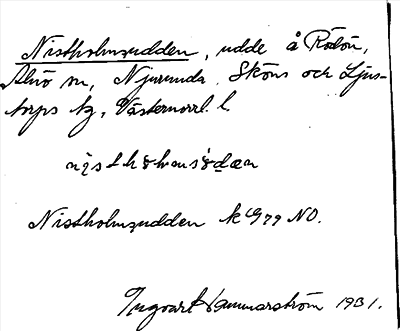 Nistholmsudden, udde å Rödön,
Alnö sn, Njurunda, Sköns och Ljus-
torps tg, Västernorrl. l.
Nistholmsudden k G79 NO.
Ingvart Hammarström 1931.